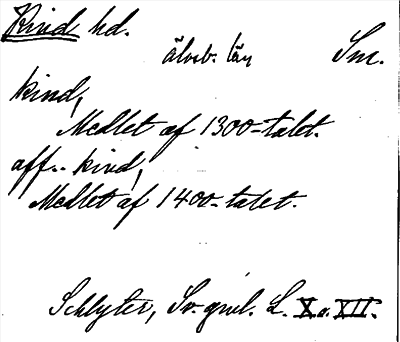 Kind hd.
älvsb. län Sm.
kind,
Medlet af 1300-talet.
aff.. kind,
Medlet af 1400-talet.
Schlyter, Sv. gml. L. X o. XII.